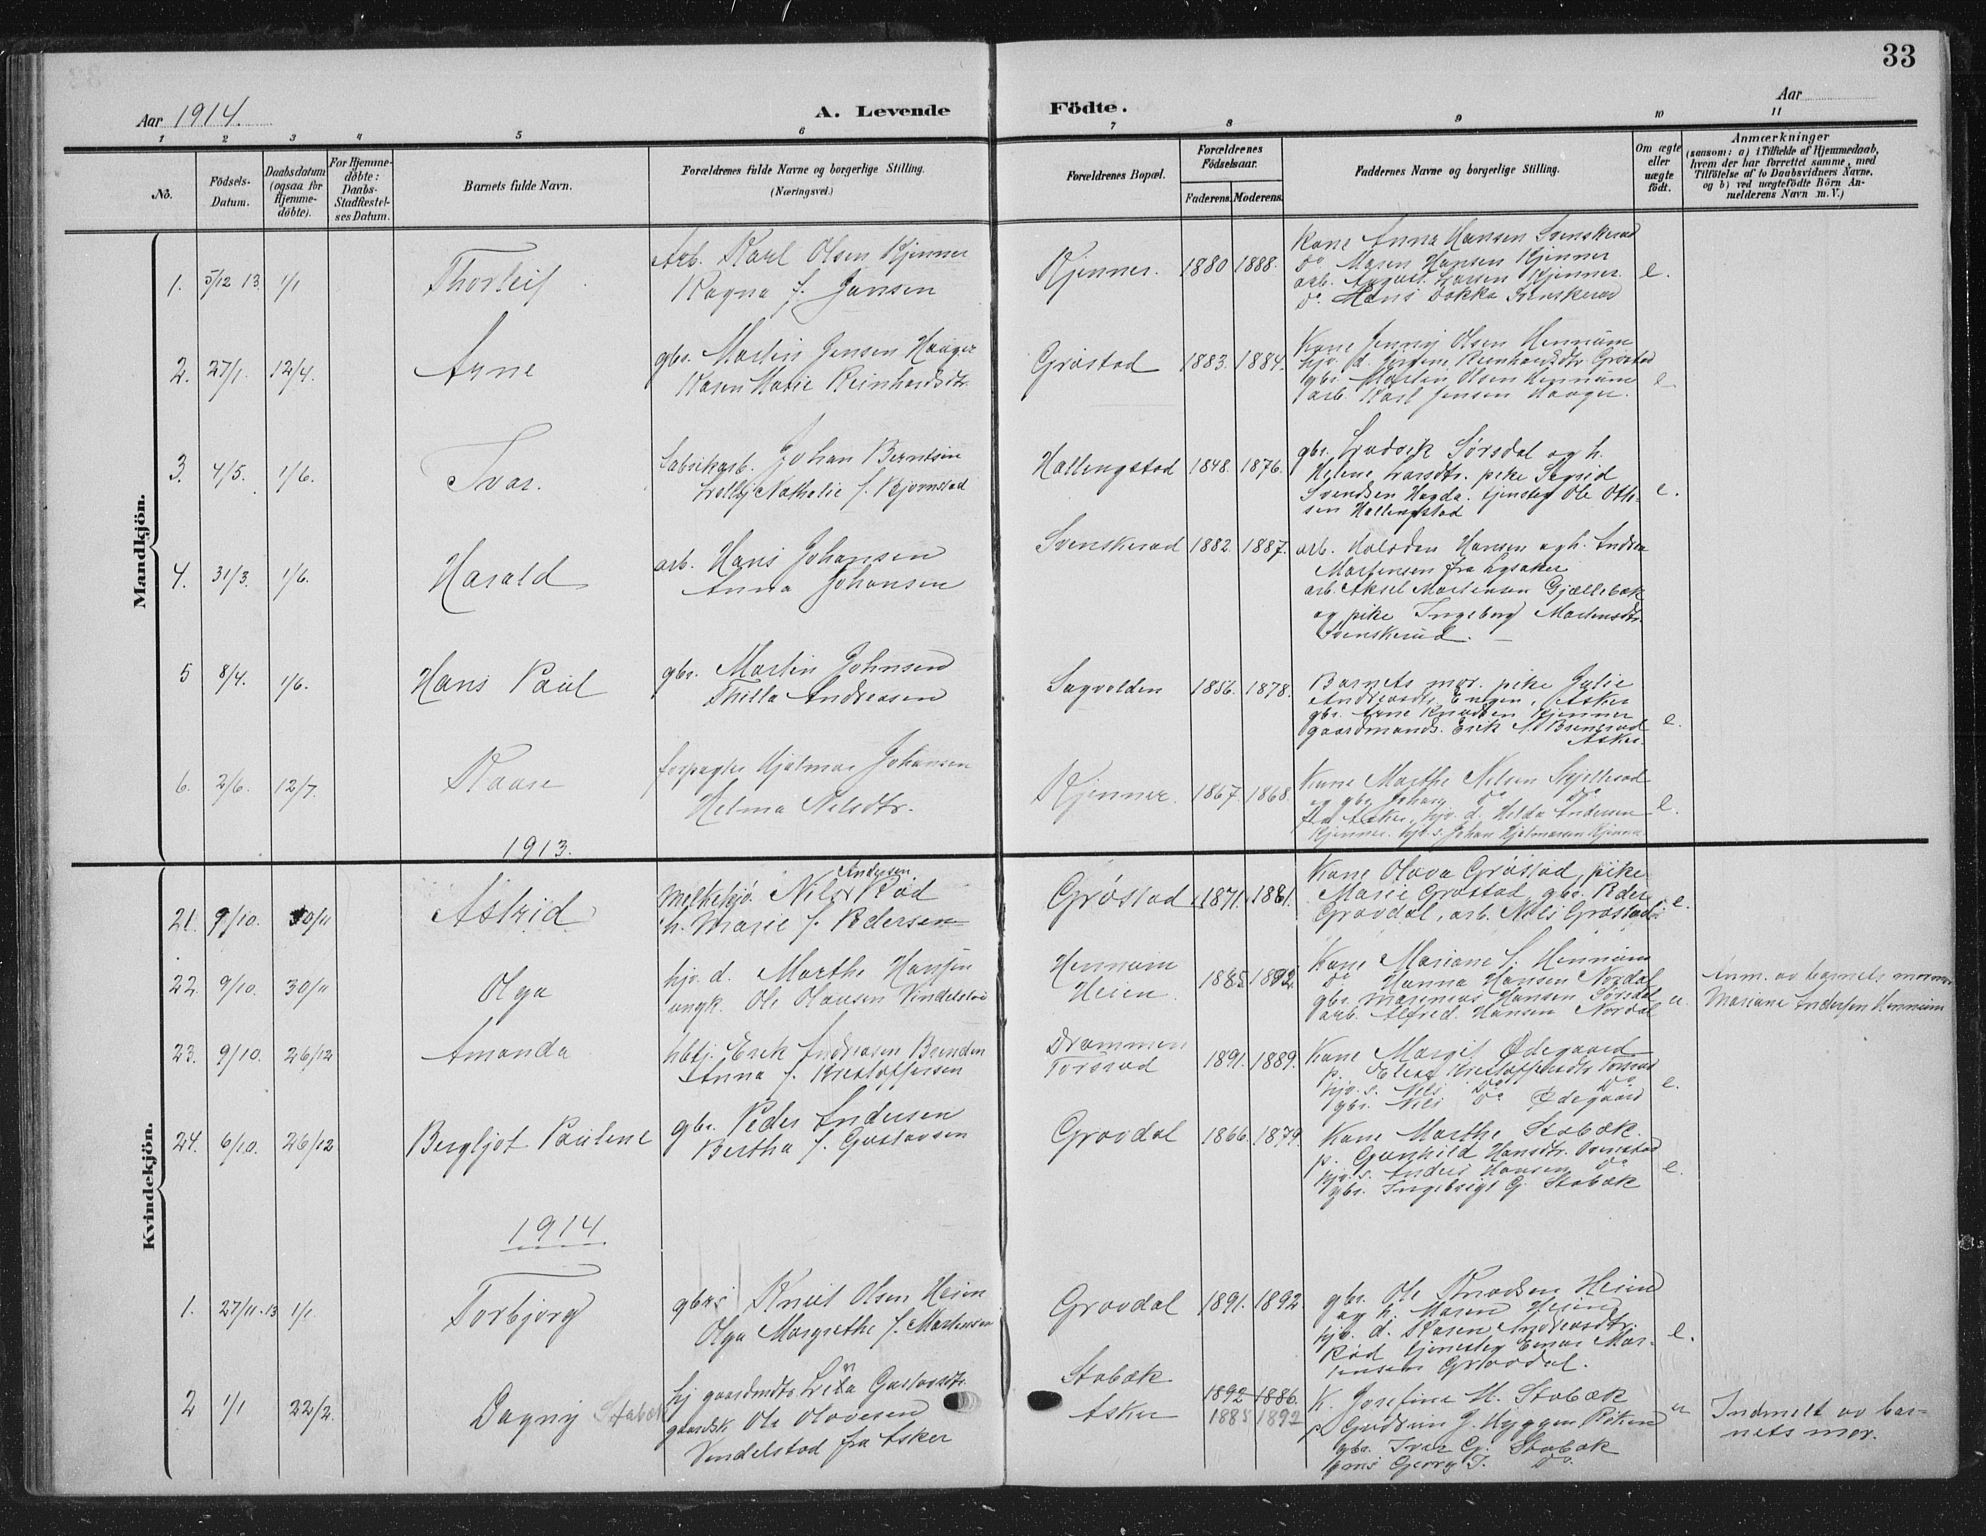 33
Aar 1914.
A. Levende Födte.
Aar
1 2 3 4 5 6 7 8 9 10 11
No.
Födsels-Datum.
Daabsdatum (ogsaa for Hjemmedöbte).
For Hjemmedöbte: Daabs-Stadfæstelses Datum.
Barnets fulde Navn.
Forældrenes fulde Navne og borgerlige Stilling.
(Næringsvei.)
Forældrenes Bopæl.
Forældrenes Födselsaar.
Faderens. Moderens.
Faddernes Navne og borgerlige Stilling.
Om ægte eller uægte födt.
Anmærkninger
(saasom: a) i Tilfælde af Hjemmedaab, hvem der har forrettet samme, med Tilföielse af to Daabsvidners Navne, og b) ved uægtefödte Börn Anmelderens Navn m. V.)
Mandkjön.
1. 5/12 13 1/1 Thorleif
Arb. Karl Olsen Kjenner
Ragna f. Jansen
Kjenner. 1880 1888.
Kone Anna Hansen Svenskerud
Do Maren Hansen Kjenner
arb. August Larsen Kjenner
Do. Hans Dokka Svenskerud
e.
2. 27/1. 12/4. Arne
gbr. Martin Jensen Haager
Karen Marie Reinhardsdtr.
Grøstad 1883. 1884.
Kone Jenny Olsen Hennum
hjv. d. Jørgine Reinhardsdtr. Grøstad
gbr. Martin Olsen Hennum
arb. Karl Jensen Haager.
e
3. 4/5. 1/6. Ivar.
Fabrikarb. Johan Berntsen
Nathalie f. Bjørnstad
Hallingstad 1848. 1876.
gbr. Ludvik Sørsdal og h.
Helene Larsdtr. pike Sigrid
Svendsen Hagda. tjenstog Ole Oth-
sen Hallingstad
e.
4. 31/3. 1/6. Harald
arb. Hans Johansen
Anna Johansen
Svenskerud 1882. 1887.
arb. Halvden Hansen og h. Andrea
Martinsen fra Lysaker
arb. Aksel Martinsen Gjellebæk
og pike Ingeborg Martinsdtr.
Svenskerud.
5 8/4. 1/6. Hans Paul
gbr. Martin Johnsen
Thilla Andreasen
Sagvolden 1856. 1878.
Barnets mor. pike Julie
Andreasdtr. Engen, Asker
gbr. Arne Knudsen Kjenner
gaardmands. Erik A. Brenerud
Asker.
e.
6. 2/6. 12/7. Kaare
forpagter Hjalmar Johansen
Helma Nilsdtr.
Kjenner. 1867. 1868.
Kone Marthe Nilsen Gjellerud
og gbr. Johan Do Do
fra Asker, hjv. d. Hilda Andersen
Kjenner. hjv. s. Johan Hjalmarsen Kjenner
e.
1913.
Kvindekjön.
21. 9/10. 30/11 Astrid
Melkekjø. Nils Andersen Rød
h. Marie f. Pedersen
Grøstad 1871. 1881.
Kone Olava Grøstad, pike
Marie Grøstad, gbr. Peder
Grovdal, arb. Nils Grøstad.
e.
22. 9/10. 30/11 Olga
hjv. d. Marthe Hansen
ungk. Ole Olausen Vindelstad
Hennum
Heien. 1885 1892
Kone Mariane f. Hennum
Do Hanna Hansen Nordal
gbr. Marinius Hansen Sørsdal
arb. Alfred. Hansen Nordal
u.
Anm. av barnets mormor
Mariane Andersen Hennum
23. 9/10. 26/12 Amanda
hbtj. Erik Andreasen Brenden
Anna f. Kristoffersen
Drammen
Torsrud 1891. 1889.
Kone Margit Ødegaard
p. Elise Kristoffersdtr Torsrud
hjv. s. Nils Do Do
gbr. Nils Do Ødegaard
e.
24. 6/10. 26/12 Bergljot Pauline
gbr. Peder Andersen
Bertha f. Gustavsen
Grovdal 1866. 1879
Kone Marthe Stabæk.
p. Gunhild Hansdtr. Ovnestad
hjv. s. Anders Hansen Do
gbr. Ingebrigt G. Stabæk
e.
1914
1. 27/11.13 1/1 Torbjørg
gbrs Knut Olsen Heien
Olga Margrethe f. Martinsen
Grovdal 1891. 1892.
gbr. Ole Knudsen Heien
og h. Maren Heien
hjv. d. Karen Andreasdtr.
Rød tjenestog Einar Mar-
tinsen Grovdal.
e.
2 1/1 22/2. Dagny Stabæk
hj gaardmdts Lina Gustavsdtr.
gaardsk Ole Olavesen
Vindelstad fra Asker
Stabæk
Asker
1892 1886.
1885 1892
K. Josefine M. Stabæk
p Gudrun J. Hyggen Røken
gbr. Ivar G. Stabæk
gms Georg J. Do.
u
Indmelt av bar-
nets mor.